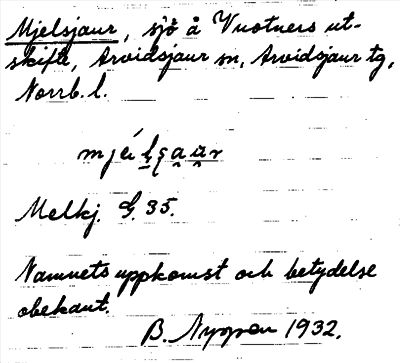 Mjelsjaur, sjö å Vuotners ut-
skifte, Arvidsjaur sn, Arvidsjaur tg,
Norrb. l.
Melkj. G. 35.
Namnets uppkomst och betydelse
obekant.
B. 1932.